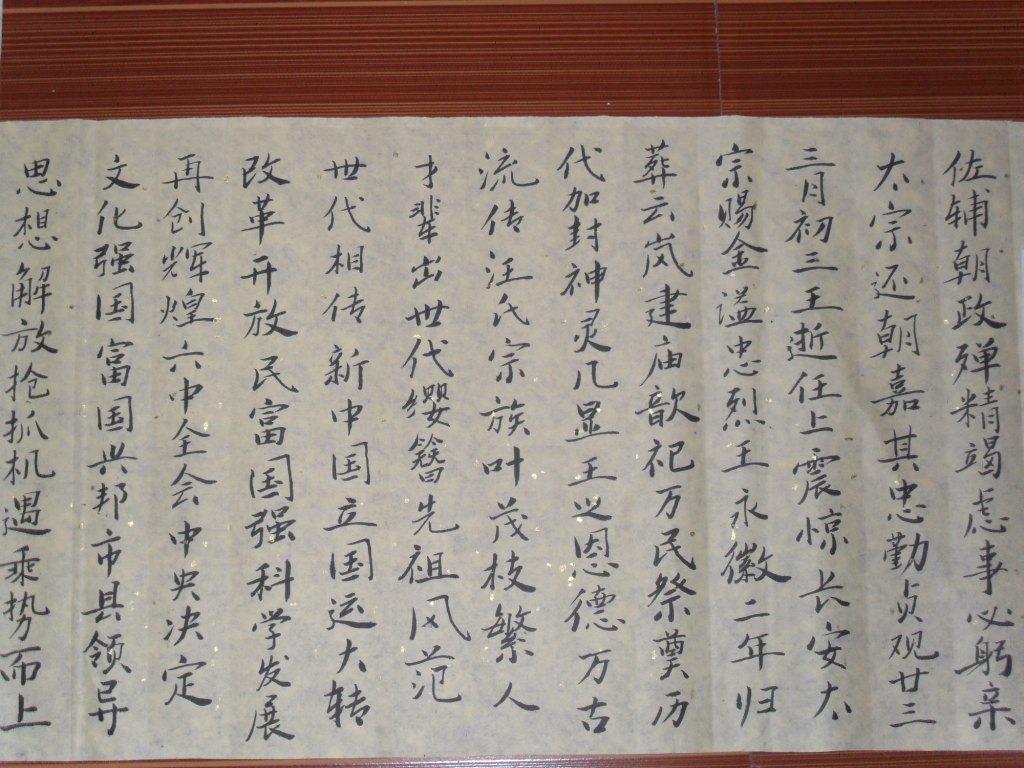 佐辅朝政殚精竭虑事必躬亲
太宗还朝嘉其忠勤贞观廿三
三月初三王逝任上震惊长安太
宗赐金谥忠烈王永徽二年归
葬云岚建庙歆祀万民祭奠历
代加封神灵几显王之恩德万古
流传汪氏宗族叶茂枝繁人
才辈出世代缨簪先祖风范
世代相传新中国立国运大转
改革开放民富国强科学发展
再创辉煌六中全会中央决定
文化强国富国兴邦市县领导
思想解放抢抓机遇乘势而上